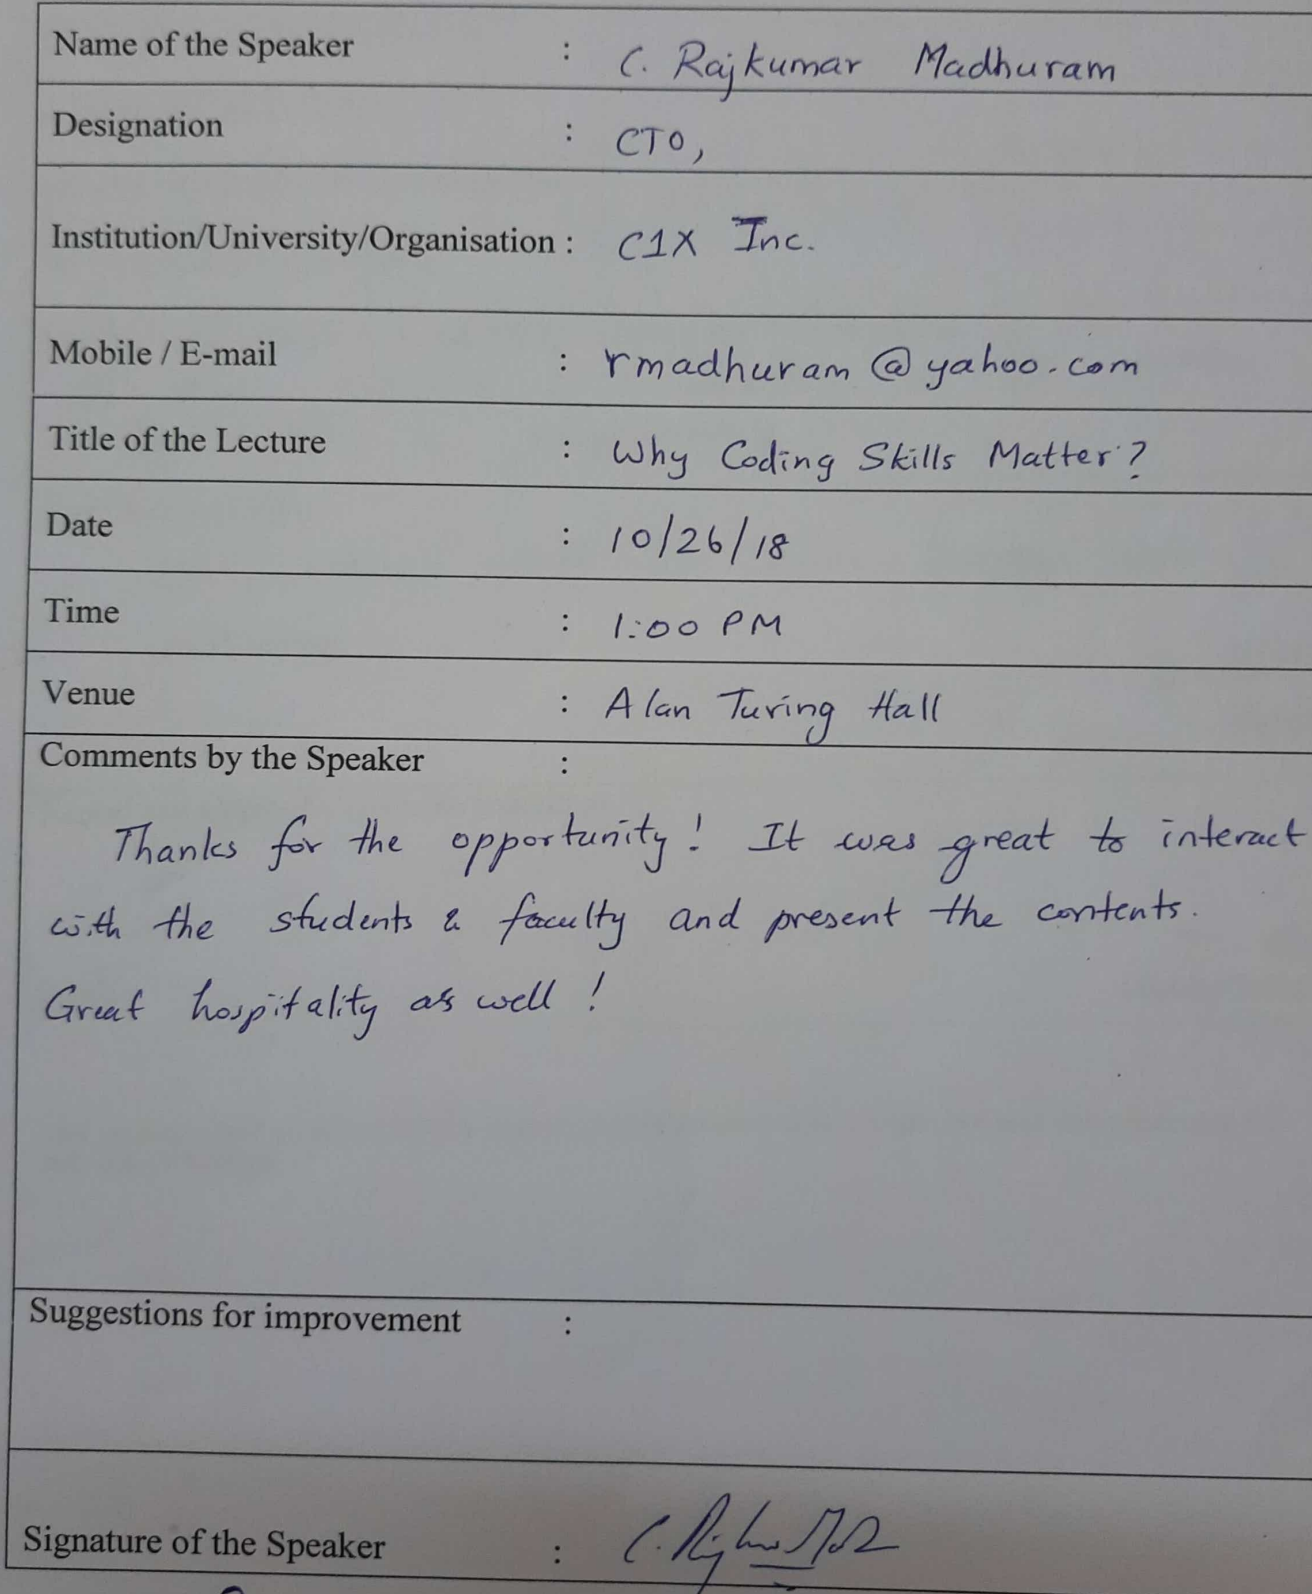 Name of the Speaker : C. Rajkumar Madhuram
Designation : CTO,
Institution/University/Organisation : C1X Inc.
Mobile / E-mail : rmadhuram@yahoo.com
Title of the Lecture : Why Coding Skills Matter?
Date : 10/26/18
Time : 1:00 PM
Venue : Alan Turing Hall
Comments by the Speaker :
Thanks for the opportunity! It was great to interact
with the students & faculty and present the contents.
Great hospitality as well!
Suggestions for improvement :
Signature of the Speaker :